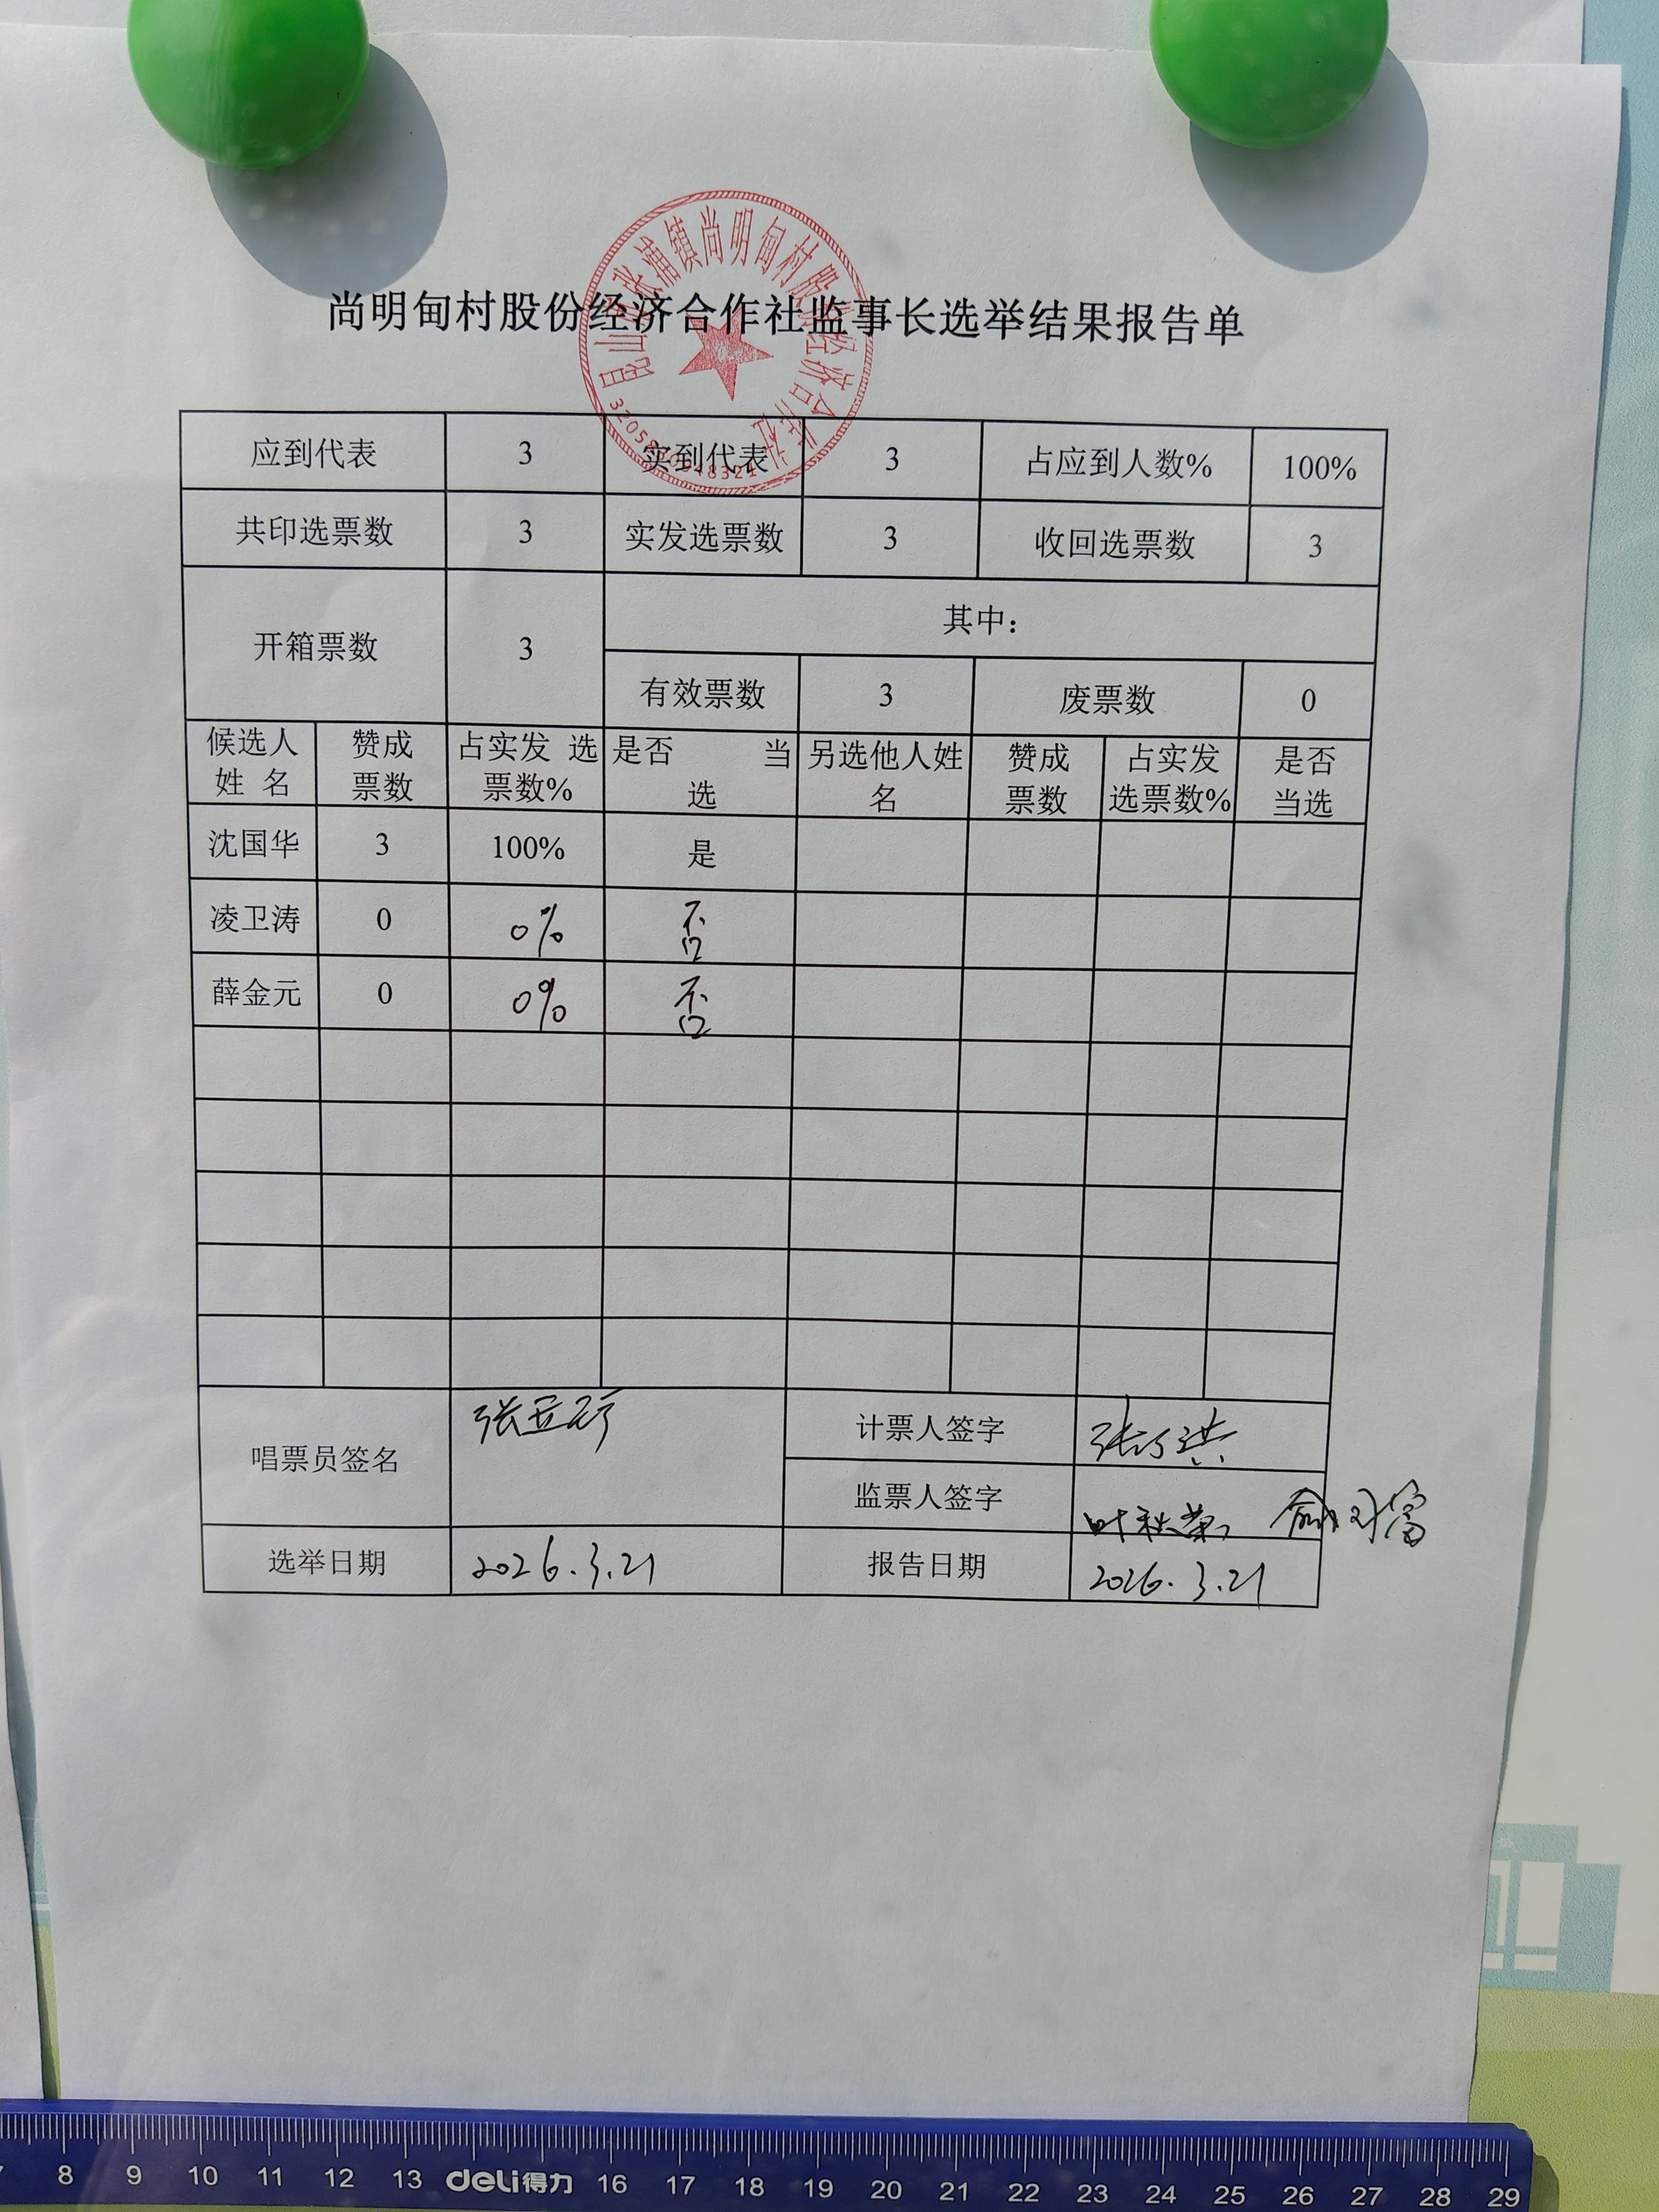 昆山市张浦镇尚明甸村股份经济合作社
尚明甸村股份经济合作社监事长选举结果报告单
应到代表 3 实到代表 3 占应到人数% 100%
共印选票数 3 实发选票数 3 收回选票数 3
开箱票数 3 其中：
有效票数 3 废票数 0
候选人 赞成 占实发 选 是否 当 另选他人姓 赞成 占实发 是否
姓 名 票数 票数% 选 名 票数 选票数% 当选
沈国华 3 100% 是
凌卫涛 0 0% 否
薛金元 0 0% 否
唱票员签名 张亚 计票人签字 张
监票人签字 叶秋荣 俞
选举日期 2026.3.21 报告日期 2026.3.21
8 9 10 11 12 13 deli得力 16 17 18 19 20 21 22 23 24 25 26 27 28 29